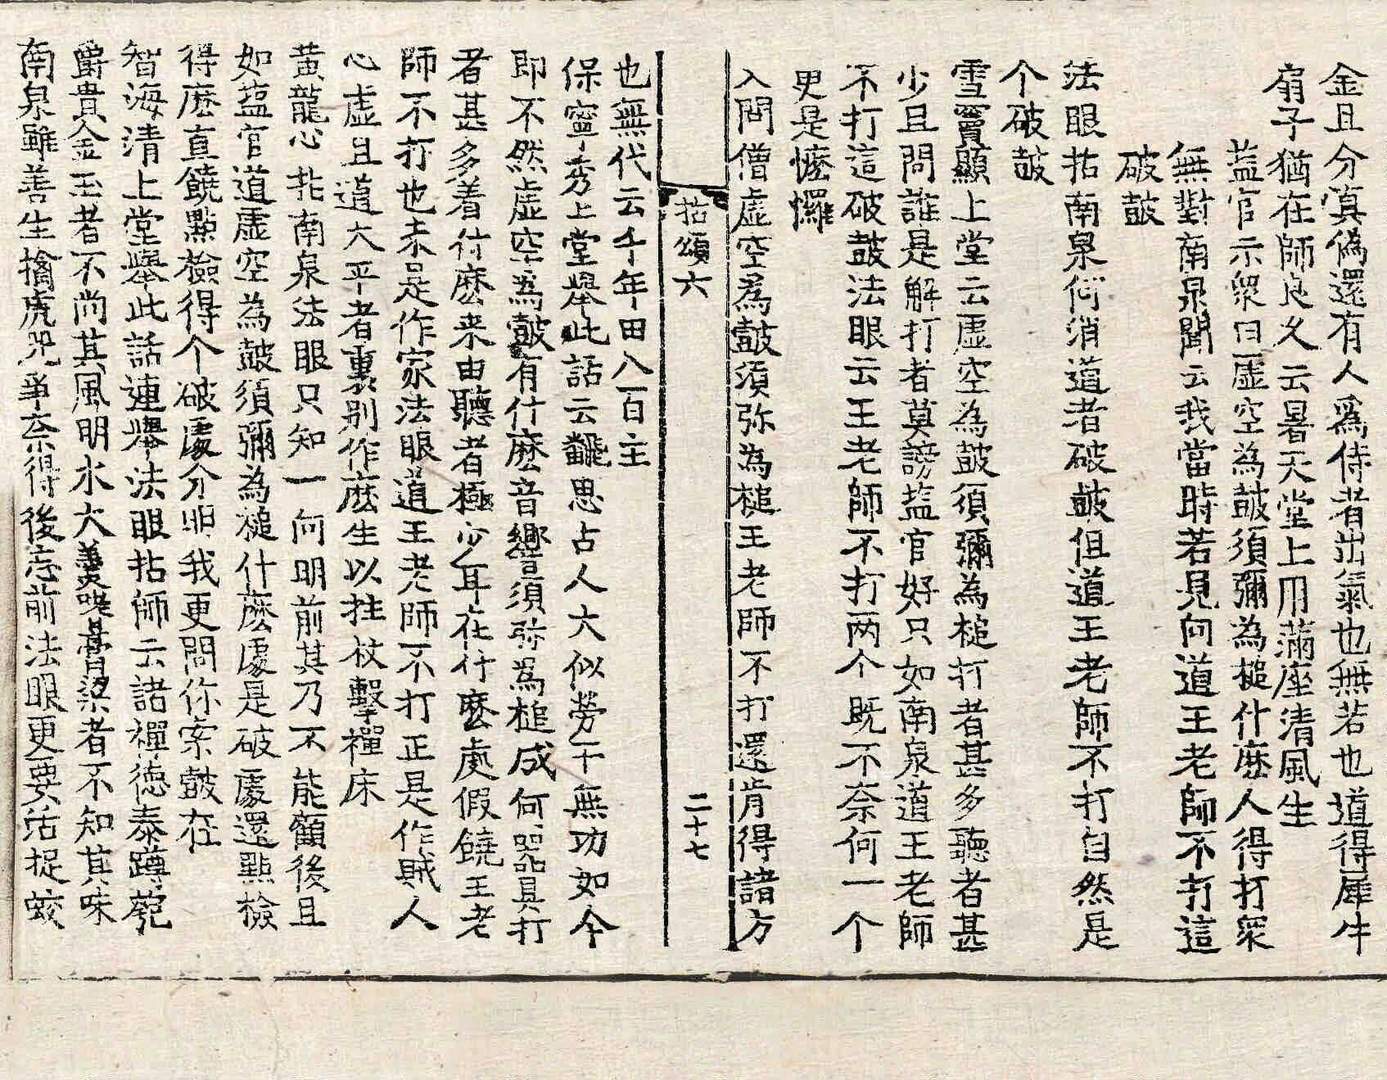 金且分真偽還有人爲侍者出氣也無若也道得犀牛
扇子猶在師良久云暑天堂上用滿座清風生
盐官示衆曰虛空為鼓須彌為槌什麽人得打衆
無對南泉聞云我當時若見向道王老師不打這
破鼓
法眼拈南泉何消道者破鼓但道王老師不打自然是
个破鼓
雪竇顯上堂云虛空為鼓須彌為槌打者甚多聽者甚
少且問誰是解打者莫謗盐官好只如南泉道王老師
不打這破鼓法眼云王老師不打两个既不奈何一个
更是懡㦬
入問僧虛空爲鼓須弥為槌王老師不打還肯得諸方
拈頌六
二十七
也無代云千年田八百主
保寧秀上堂舉此話云翻思古人大似勞而無功如今
即不然虛空爲鼓有什麽音響須弥爲槌成何器具打
者甚多着什麽来由聽者極少耳在什麽處假饒王老
師不打也未是作家法眼道王老師不打正是作賊人
心虛且道大平者裏別作麽生以拄杖擊禪床
黄龍心拈南泉法眼只知一何明前其乃不能顧後且
如盐官道虛空為鼓須彌為槌什麽處是破處還點檢
得麽直饒點檢得个破處分明我更問你案鼓在
智海清上堂舉此話連舉法眼拈師云諸禪德泰蹲菀
爵貴金玉者不尚其風明水大羹唉膏粱者不知其味
南泉雖善生擒虎兕爭奈得後忘前法眼更要活捉蛟